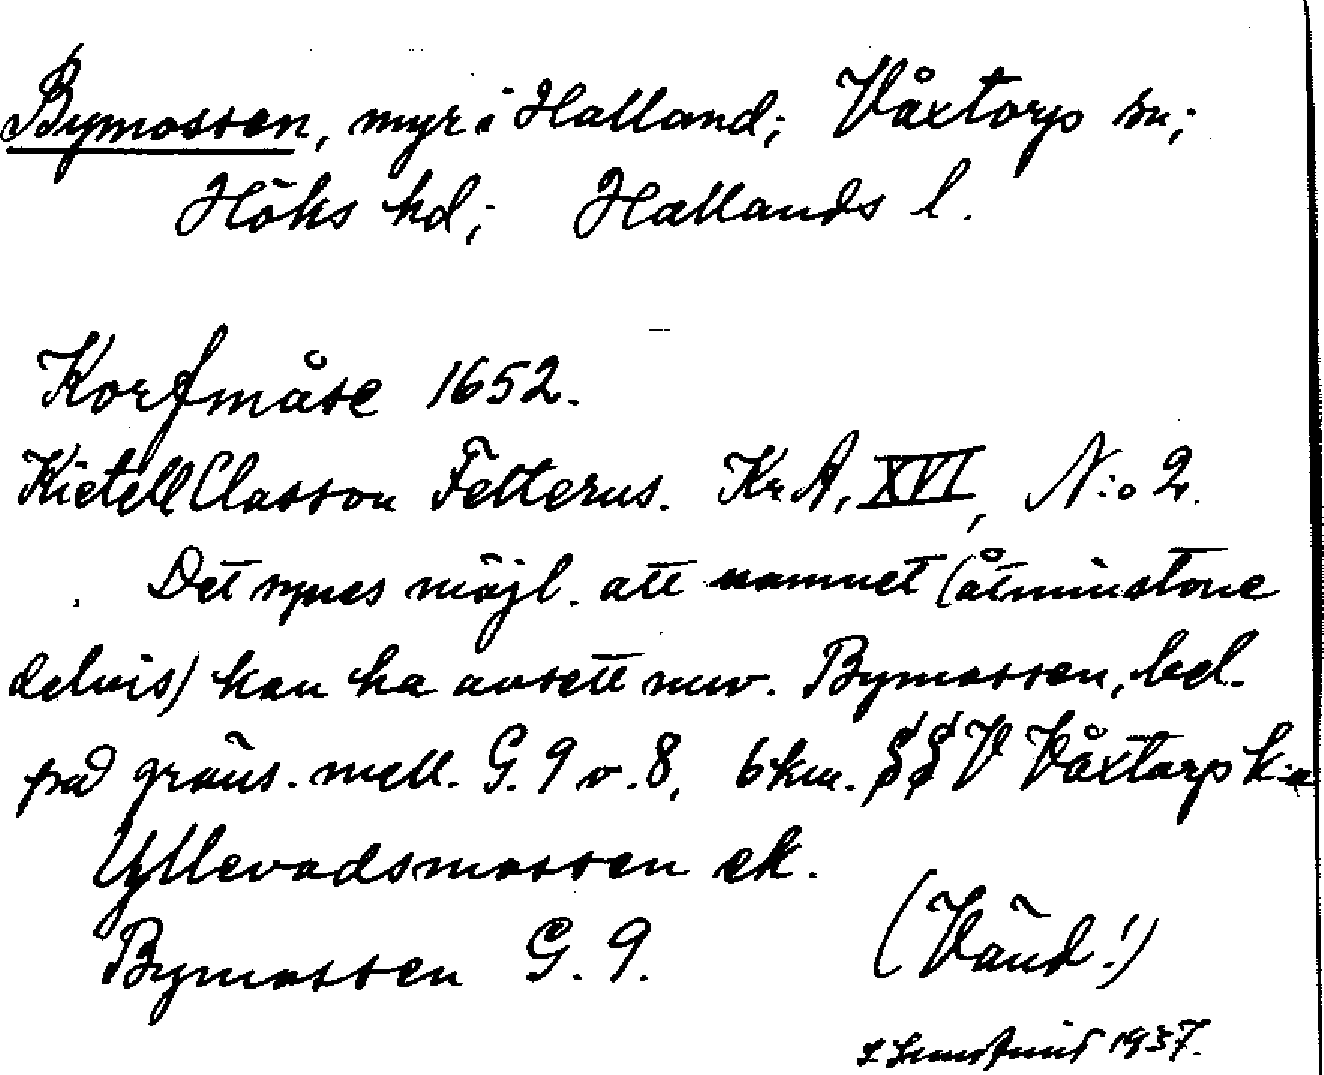 Bymossen, myr i Halland; Våxtorp sn;
Höks hd; Hallands l.
Korfmåse 1652.
Kietell Classon Felterus. Kr A, XVI, N:o 2.
Det synes möjl. att namnet (åtminstone
delvis) kan ha avsett nuv. Bymossen, bel.
på gräns. mell. G. 9 o. 8, 6 km. SSV Våxtorp k:a
Yllevadsmossen ek.
Bymossen G. 9.
(Vänd!)
1937.